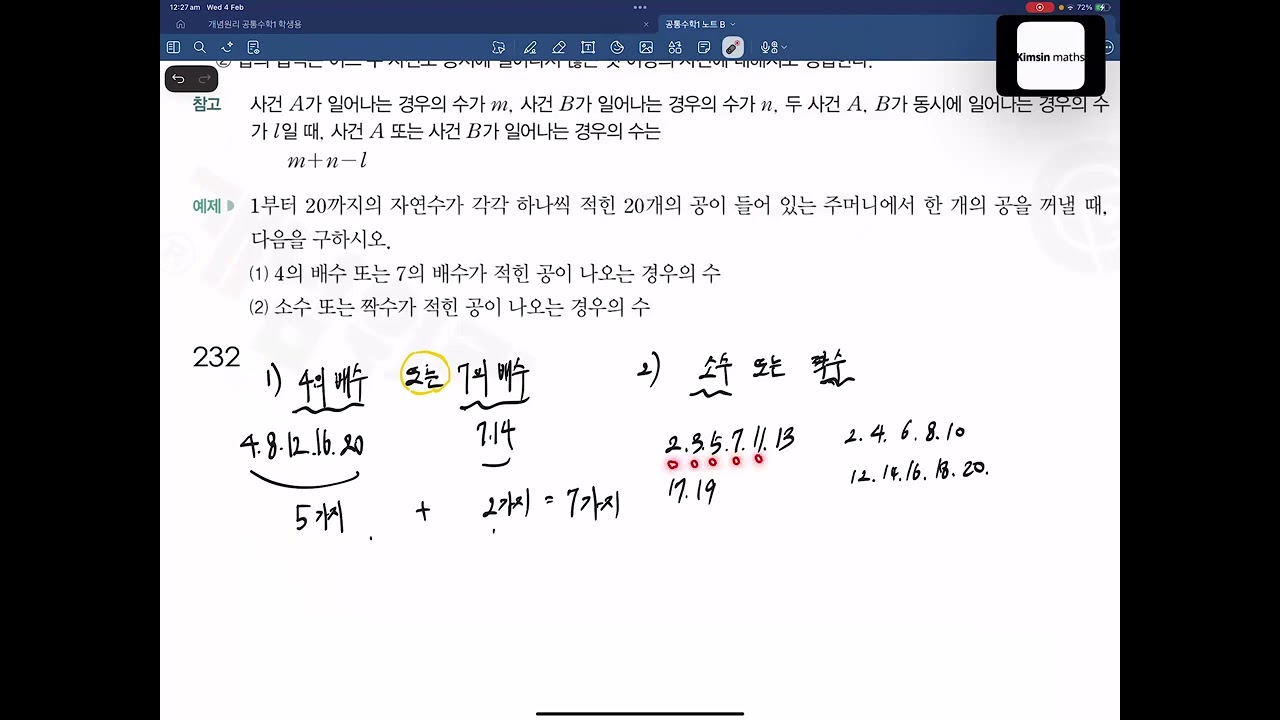 12:27 am Wed 4 Feb
72%
개념원리 공통수학1 학생용
공통수학1 노트 B
Kimsin maths
참고 사건 A가 일어나는 경우의 수가 m, 사건 B가 일어나는 경우의 수가 n, 두 사건 A, B가 동시에 일어나는 경우의 수
가 l일 때, 사건 A 또는 사건 B가 일어나는 경우의 수는
m+n-l
예제 1부터 20까지의 자연수가 각각 하나씩 적힌 20개의 공이 들어 있는 주머니에서 한 개의 공을 꺼낼 때,
다음을 구하시오.
(1) 4의 배수 또는 7의 배수가 적힌 공이 나오는 경우의 수
(2) 소수 또는 짝수가 적힌 공이 나오는 경우의 수
232
1) 4의 배수 또는 7의 배수
4.8.12.16.20 7.14
5가지 + 2가지 = 7가지
2) 소수 또는 짝수
2.3.5.7.11.13 2.4.6.8.10
17.19 12.14.16.18.20.